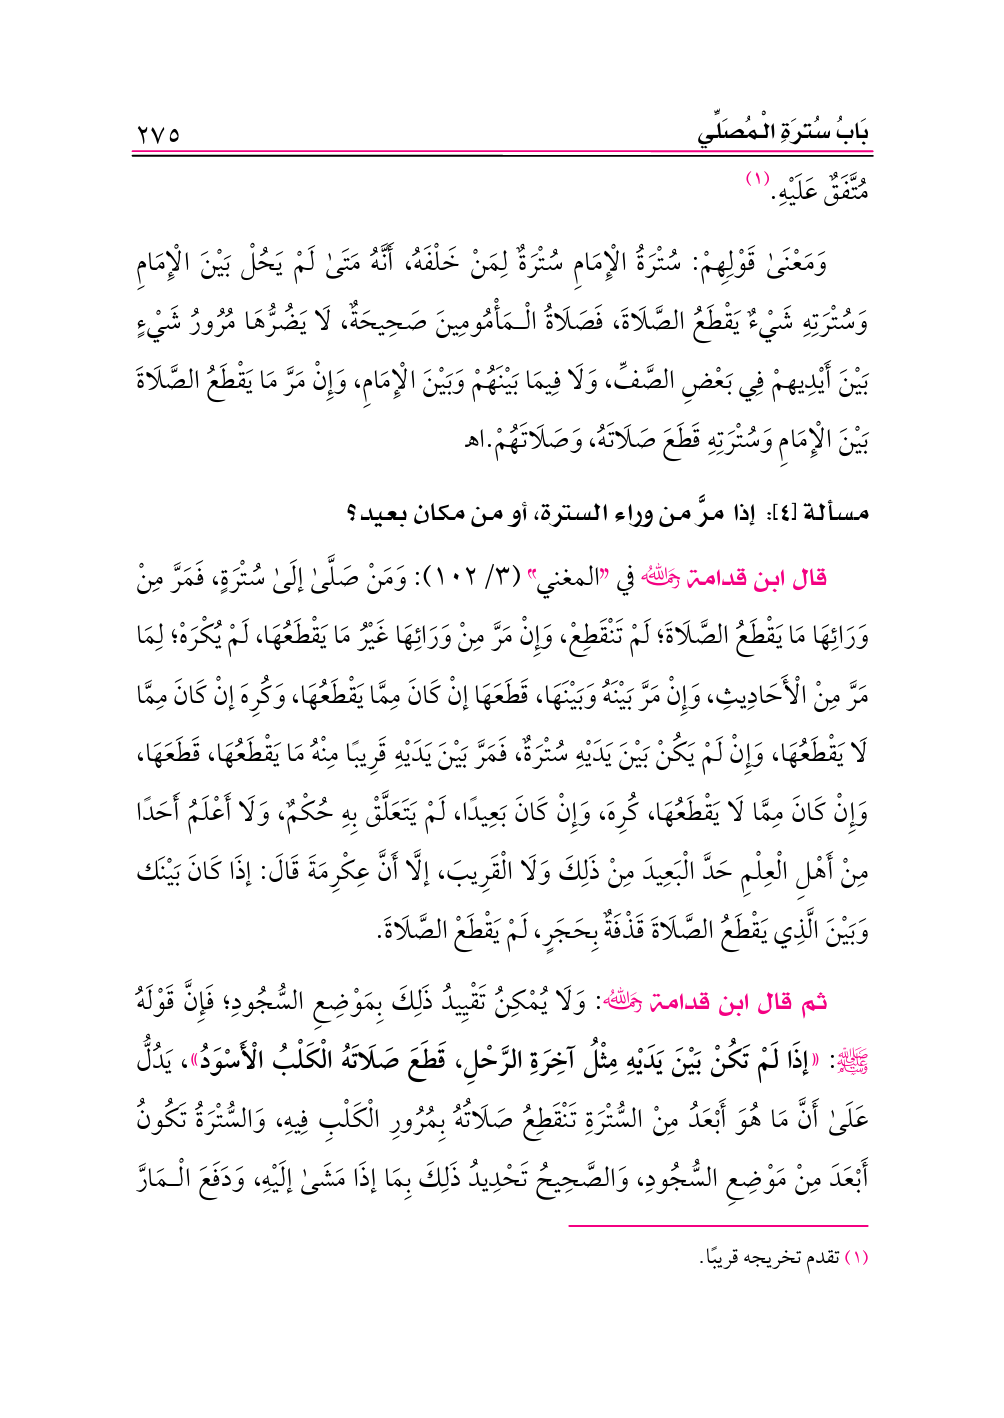 بَابُ سُترَةِ الْمُصَلِّي ٢٧٥
مُتَّفَقٌ عَلَيْهِ.(١)
وَمَعْنَىٰ قَوْلِهِمْ: سُتْرَةُ الْإِمَامِ سُتْرَةٌ لِمَنْ خَلْفَهُ، أَنَّهُ مَتَىٰ لَمْ يَحُلْ بَيْنَ الْإِمَامِ
وَسُتْرَتِهِ شَيْءٌ يَقْطَعُ الصَّلَاةَ، فَصَلَاةُ الْـمَأْمُومِينَ صَحِيحَةٌ، لَا يَضُرُّهَا مُرُورُ شَيْءٍ
بَيْنَ أَيْدِيهِمْ فِي بَعْضِ الصَّفِّ، وَلَا فِيمَا بَيْنَهُمْ وَبَيْنَ الْإِمَامِ، وَإِنْ مَرَّ مَا يَقْطَعُ الصَّلَاةَ
بَيْنَ الْإِمَامِ وَسُتْرَتِهِ قَطَعَ صَلَاتَهُ، وَصَلَاتَهُمْ.اهـ
مسألة [٤]: إذا مرَّ من وراء السترة، أو من مكان بعيد؟
قال ابن قدامة رحمه الله في "المغني" (٣/ ١٠٢): وَمَنْ صَلَّىٰ إلَىٰ سُتْرَةٍ، فَمَرَّ مِنْ
وَرَائِهَا مَا يَقْطَعُ الصَّلَاةَ؛ لَمْ تَنْقَطِعْ، وَإِنْ مَرَّ مِنْ وَرَائِهَا غَيْرُ مَا يَقْطَعُهَا، لَمْ يُكْرَهْ؛ لِمَا
مَرَّ مِنْ الْأَحَادِيثِ، وَإِنْ مَرَّ بَيْنَهُ وَبَيْنَهَا، قَطَعَهَا إنْ كَانَ مِمَّا يَقْطَعُهَا، وَكُرِهَ إنْ كَانَ مِمَّا
لَا يَقْطَعُهَا، وَإِنْ لَمْ يَكُنْ بَيْنَ يَدَيْهِ سُتْرَةٌ، فَمَرَّ بَيْنَ يَدَيْهِ قَرِيبًا مِنْهُ مَا يَقْطَعُهَا، قَطَعَهَا،
وَإِنْ كَانَ مِمَّا لَا يَقْطَعُهَا، كُرِهَ، وَإِنْ كَانَ بَعِيدًا، لَمْ يَتَعَلَّقْ بِهِ حُكْمٌ، وَلَا أَعْلَمُ أَحَدًا
مِنْ أَهْلِ الْعِلْمِ حَدَّ الْبَعِيدَ مِنْ ذَلِكَ وَلَا الْقَرِيبَ، إلَّا أَنَّ عِكْرِمَةَ قَالَ: إذَا كَانَ بَيْنَك
وَبَيْنَ الَّذِي يَقْطَعُ الصَّلَاةَ قَذْفَةٌ بِحَجَرٍ، لَمْ يَقْطَعْ الصَّلَاةَ.
ثم قال ابن قدامة رحمه الله: وَلَا يُمْكِنُ تَقْيِيدُ ذَلِكَ بِمَوْضِعِ السُّجُودِ؛ فَإِنَّ قَوْلَهُ
ﷺ: «إذَا لَمْ تَكُنْ بَيْنَ يَدَيْهِ مِثْلُ آخِرَةِ الرَّحْلِ، قَطَعَ صَلَاتَهُ الْكَلْبُ الْأَسْوَدُ»، يَدُلُّ
عَلَىٰ أَنَّ مَا هُوَ أَبْعَدُ مِنْ السُّتْرَةِ تَنْقَطِعُ صَلَاتُهُ بِمُرُورِ الْكَلْبِ فِيهِ، وَالسُّتْرَةُ تَكُونُ
أَبْعَدَ مِنْ مَوْضِعِ السُّجُودِ، وَالصَّحِيحُ تَحْدِيدُ ذَلِكَ بِمَا إذَا مَشَىٰ إلَيْهِ، وَدَفَعَ الْـمَارَّ
(١) تقدم تخريجه قريبًا.